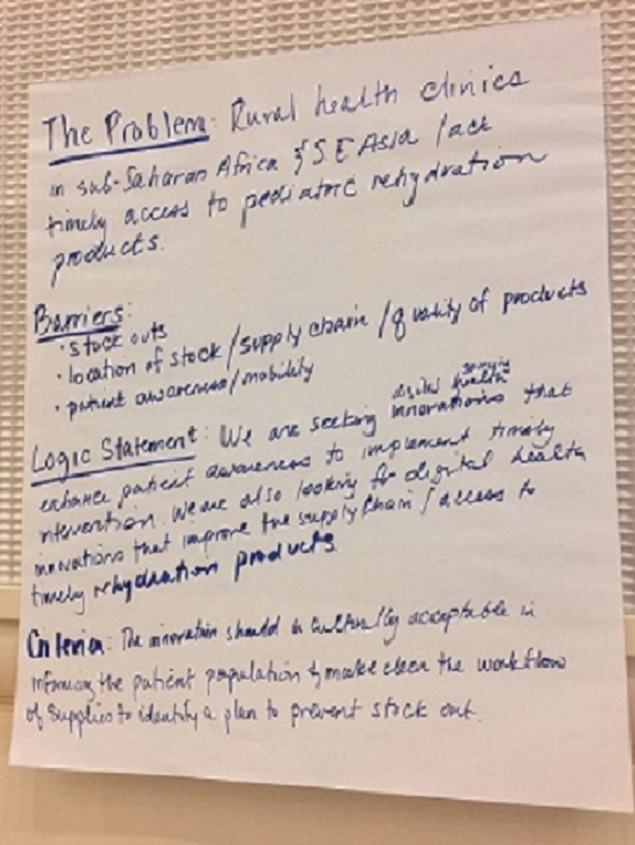 The Problem: Rural health clinics
in sub-Saharan Africa & S.E Asia lack
timely access to pediatric rehydration
products.
Barriers:
· stock outs
· location of stock/supply chain/quality of products
· patient awareness/mobility
digital health
Logic Statement: We are seeking innovations that
enhance patient awareness to implement timely
intervention. We are also looking for digital health
innovations that improve the supply chain/access to
timely rehydration products
Criteria: The innovation should be culturally acceptable in
informing the patient population & make clear the workflow
of supplies to identify a plan to prevent stock out.